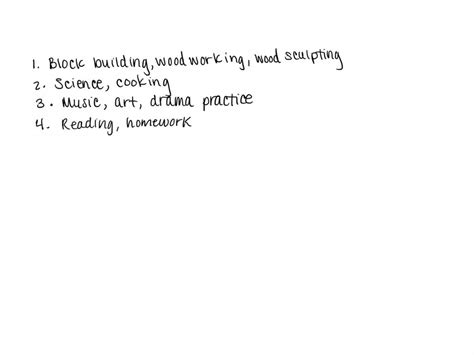 1. Block building, woodworking, wood sculpting
2. Science, cooking
3. Music, art, drama practice
4. Reading, homework